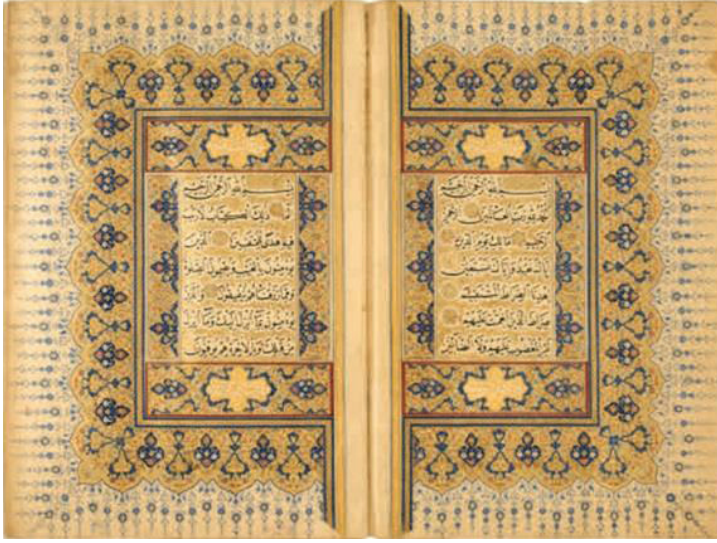 بسم الله الرحمن الرحيم
الحمد لله رب العالمين الرحمن
الرحيم مالك يوم الدين
إياك نعبد وإياك نستعين
اهدنا الصراط المستقيم
صراط الذين أنعمت عليهم
غير المغضوب عليهم ولا الضالين
بسم الله الرحمن الرحيم
الم ذلك الكتاب لا ريب
فيه هدى للمتقين الذين
يؤمنون بالغيب ويقيمون الصلوة
ومما رزقناهم ينفقون والذين
يؤمنون بما أنزل إليك وما أنزل
من قبلك وبالآخرة هم يوقنون